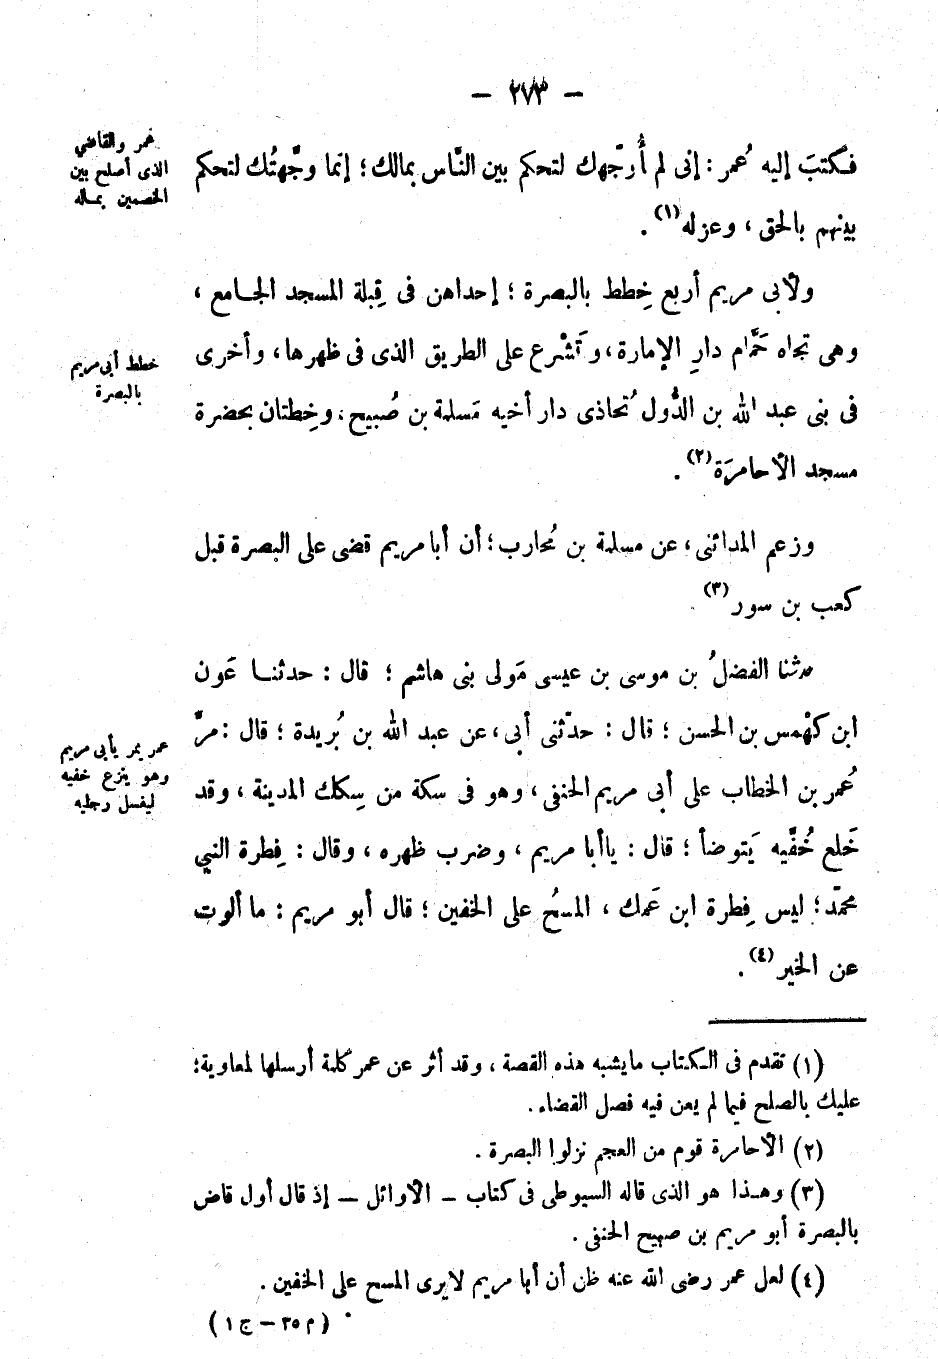 — ٢٧٣ —
فكتبَ إليه عُمر : إنى لم أُوجّهك لتحكم بين النَّاس بمالك ؛ إنما وجَّهتُك لتحكم
بينهم بالحق ، وعزله (١) .
عمر والقاضي
الذى أصلح بين
الخصمين بماله
ولأبى مريم أربع خِطط بالبصرة ؛ إحداهن فى قِبلة المسجد الجامع ،
وهى تجاه حَمَّام دارِ الإمارة ، وتَشْرع على الطريق الذى فى ظهرها ، وأخرى
فى بنى عبد الله بن الدُّول تُحاذى دار أخيه مَسلمة بن صُبيح . وخِطتان بحضرة
مسجد الأحامرَة (٢) .
خطط أبى مريم
بالبصرة
وزعم المدائنى ، عن مسلمة بن مُحارب ؛ أن أبا مريم قضى على البصرة قبل
كعب بن سور (٣) .
حدثنا الفضلُ بن موسى بن عيسى مَولى بنى هاشم ؛ قال : حدثنا عَون
ابن كهْمس بن الحسن ؛ قال : حدّثنى أبى ، عن عبد الله بن بُريدة ؛ قال : مرَّ
عُمر بن الخطاب على أبى مريم الحنفى ، وهو فى سكة من سِكك المدينة ، وقد
خَلع خُفَّيه يَتوضأ ؛ قال : ياأبا مريم ، وضرب ظهره ، وقال : فِطرة النبي
محمّد ؛ ليس فِطرة ابن عَمك ، المسحُ على الخفين ؛ قال أبو مريم : ما ألوت
عن الخير (٤) .
عمر يمر بأبى مريم
وهو ينزع خفيه
ليغسل رجليه
(١) تقدم فى الكتاب مايشبه هذه القصة ، وقد أثر عن عمر كلمة أرسلها لمعاوية :
عليك بالصلح فيما لم يعن فيه فصل القضاء .
(٢) الأحامرة قوم من العجم نزلوا البصرة .
(٣) وهذا هو الذى قاله السيوطى فى كتاب — الأوائل — إذ قال أول قاض
بالبصرة أبو مريم بن صبيح الحنفى .
(٤) لعل عمر رضى الله عنه ظن أن أبا مريم لايرى المسح على الخفين .
( م ٣٥ — ج ١ )